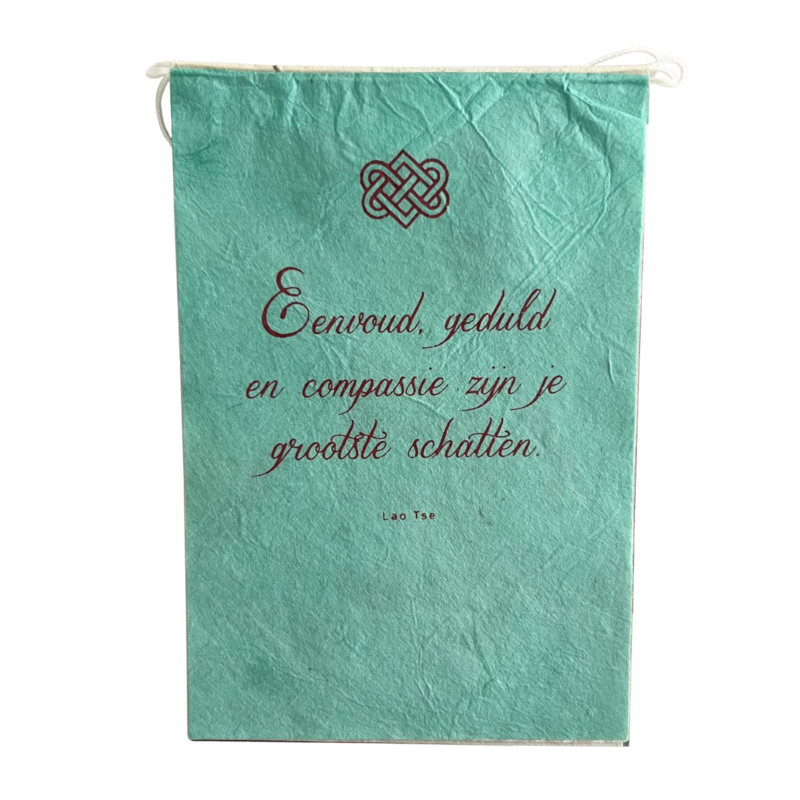 Eenvoud, geduld
en compassie zijn je
grootste schatten.
Lao Tse